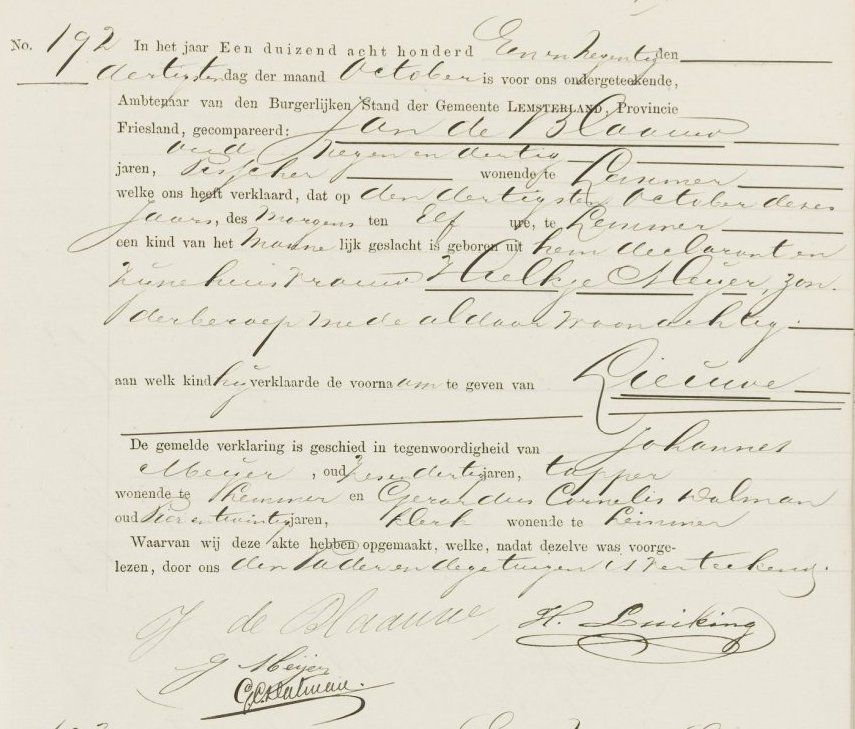 No. 192 In het jaar Een duizend acht honderd Een en Negentig den
dertigsten dag der maand October is voor ons ondergeteekende,
Ambtenaar van den Burgerlijken Stand der Gemeente LEMSTERLAND, Provincie
Friesland, gecompareerd: Jan de Blaauw
oud Negen en dertig
jaren, Visscher wonende te Lemmer
welke ons heeft verklaard, dat op den dertigsten October dezes
Jaars, des Morgens ten Elf ure, te Lemmer
een kind van het Manne lijk geslacht is geboren uit hem declarant en
Zijne huisvrouw Hielkje Meijer, zon-
der beroep mede aldaar woonachtig.
aan welk kind hij verklaarde de voornaam te geven van Lieuwe
De gemelde verklaring is geschied in tegenwoordigheid van Johannes
Meijer, oud Zes en dertig jaren, tapper
wonende te Lemmer en Gerardus Cornelis Dalman
oud Vier en twintig jaren, Klerk wonende te Lemmer
Waarvan wij deze akte hebben opgemaakt, welke, nadat dezelve was voorge-
lezen, door ons den Vader en de getuigen is verteekend.
J de Blaauw H. Luiking
J Meijer
G.C. Dalman.